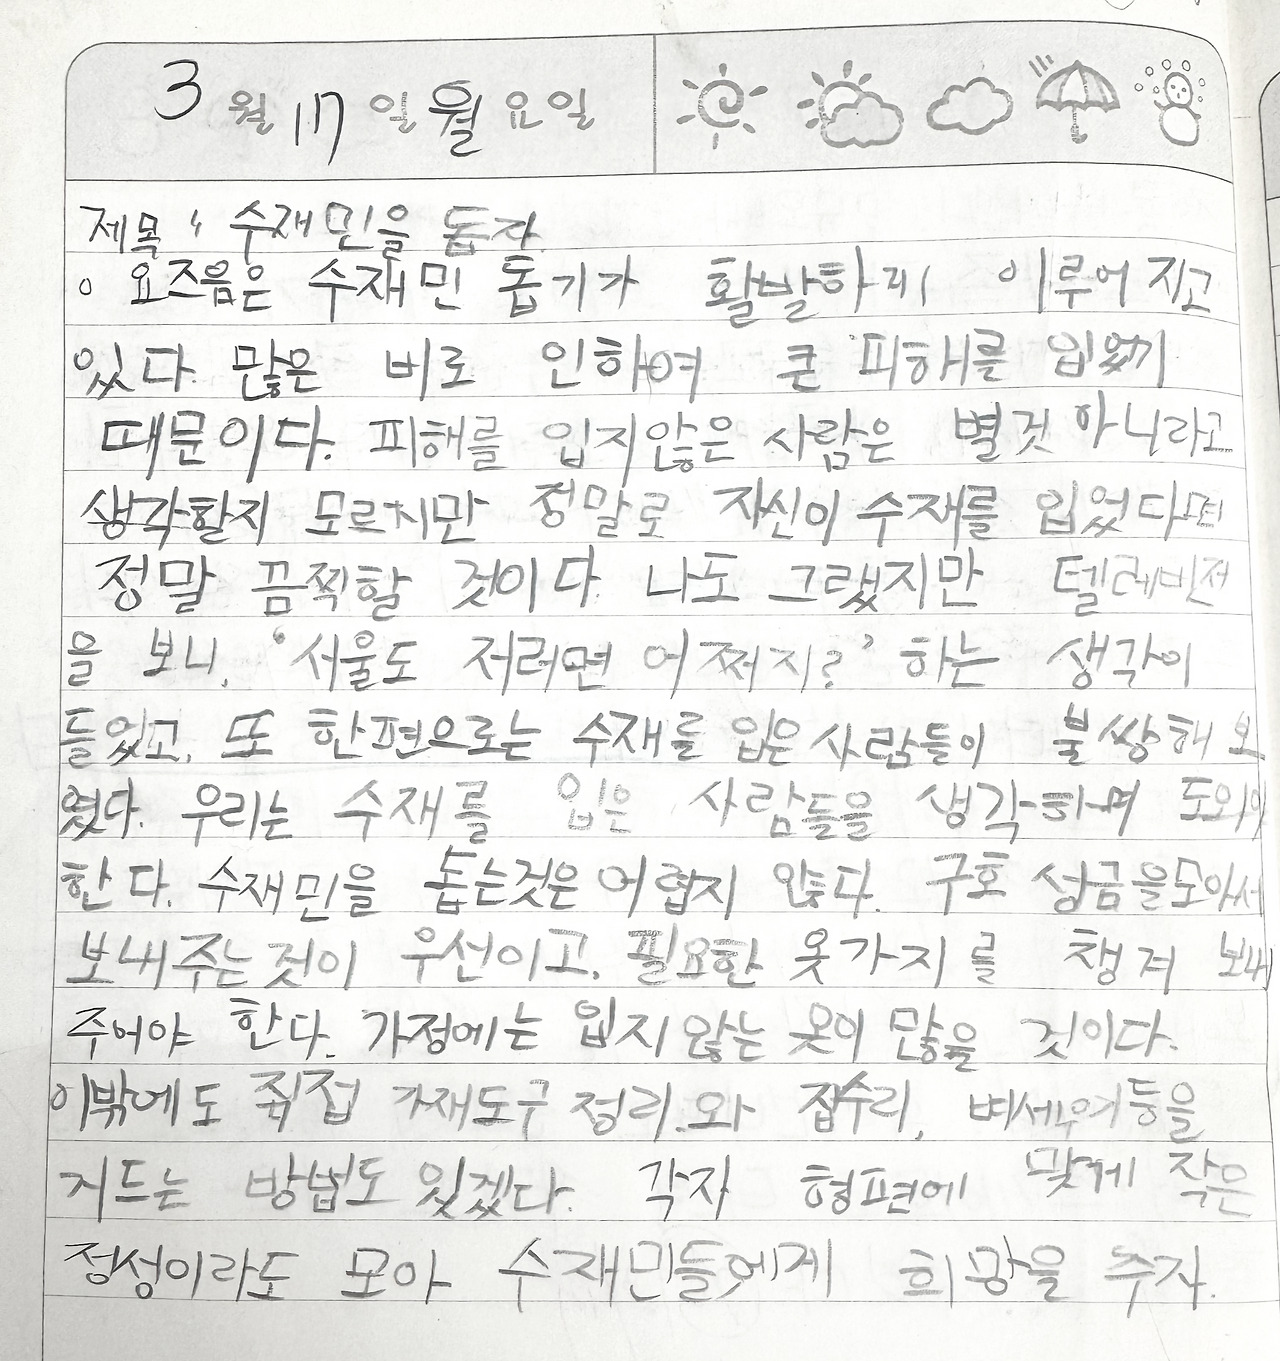 3월 17일 월요일
제목 : 수재민을 돕자
◦ 요즈음은 수재민 돕기가 활발하게 이루어 지고
있다. 많은 비로 인하여 큰 피해를 입었기
때문이다. 피해를 입지않은 사람은 별것 아니라고
생각할지 모르지만 정말로 자신이 수재를 입었다면
정말 끔찍할 것이다. 나도 그랬지만 텔레비전
을 보니, '서울도 저러면 어쩌지?' 하는 생각이
들었고, 또 한편으로는 수재를 입은 사람들이 불쌍해 보
였다. 우리는 수재를 입은 사람들을 생각하며 도와야
한다. 수재민을 돕는것은 어렵지 않다. 구호 성금을모아서
보내주는것이 우선이고, 필요한 옷가지를 챙겨 보내
주어야 한다. 가정에는 입지않는 옷이 많을 것이다.
이밖에도 직접 가재도구 정리와 집수리, 벼세우기등을
거드는 방법도 있겠다. 각자 형편에 맞게 작은
정성이라도 모아 수재민들에게 희망을 주자.